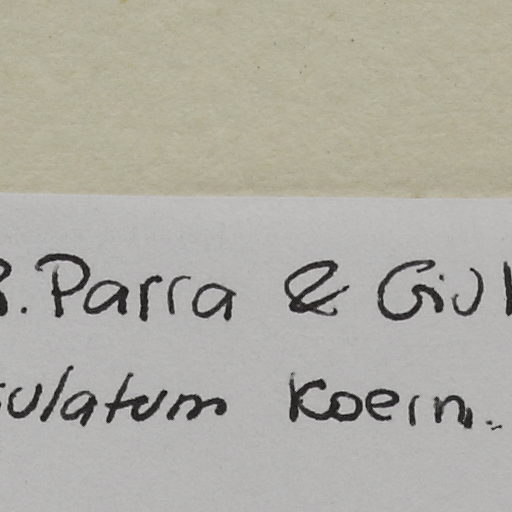 . Parra & Giul
culatum Koern.